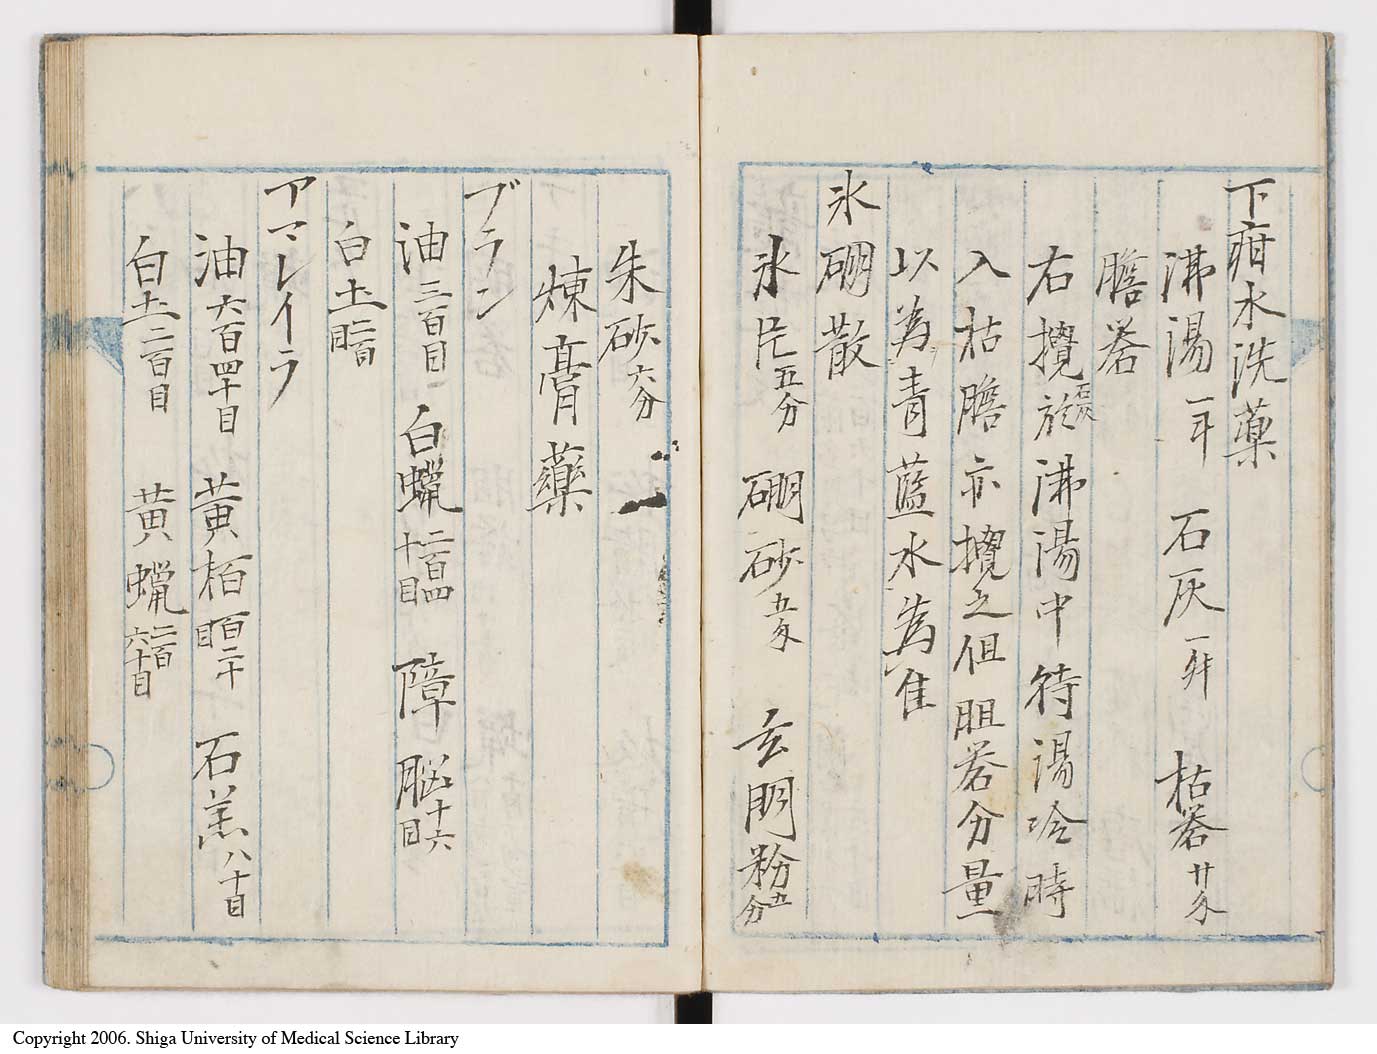 下疳水洗薬
沸湯一斗 石灰一舛 枯礬廿匁
膽礬
右攪石灰於沸湯中待湯冷時
入枯膽亦攪之但胆礬分量
以為青藍水為准
氷硼散
氷片五分 硼砂五匁 玄明粉五分
朱砂六分
煉膏藥
ブラン
油三百目 白蝋二百四十目 障脳十六目
白土二百目
アマレイラ
油六百四十目 黄栢百二十目 石羔八十目
白土二百目 黄蝋二百六十目
Copyright 2006. Shiga University of Medical Science Library